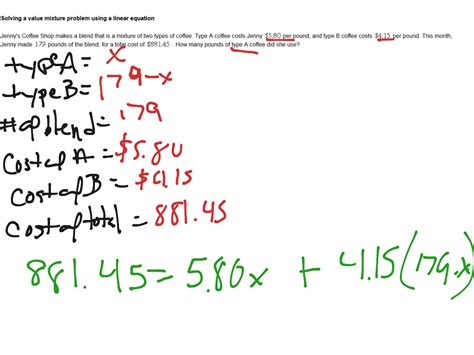 Solving a value mixture problem using a linear equation
Jenny's Coffee Shop makes a blend that is a mixture of two types of coffee. Type A coffee costs Jenny $5.80 per pound, and type B coffee costs $4.15 per pound. This month,
Jenny made 179 pounds of the blend, for a total cost of $881.45. How many pounds of type A coffee did she use?
type A = x
type B = 179-x
# of blend = 179
Cost of A = $5.80
Cost of B = $4.15
Cost of total = 881.45
881.45 = 5.80x + 4.15(179-x)